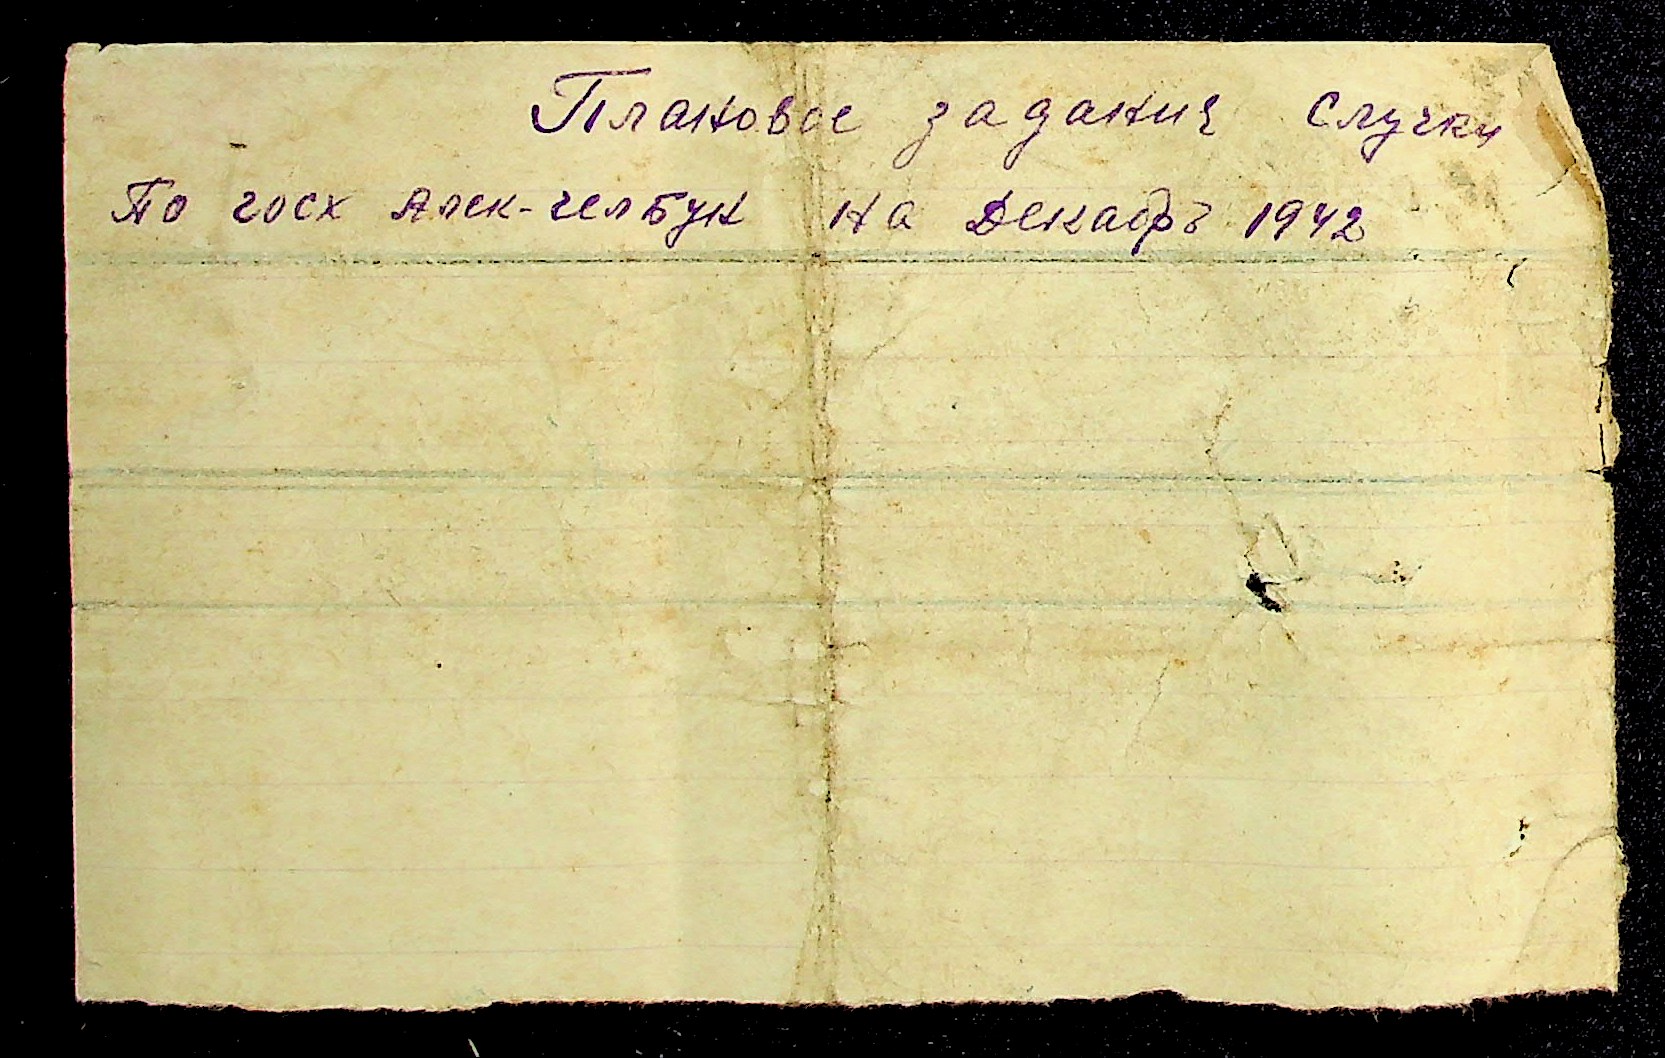 Плановое задание Случки
По госх Алек-челбук на Декабрь 1942